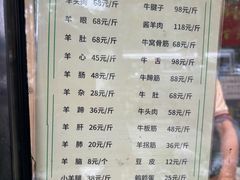 羊头肉 68元/斤
羊眼 68元/斤
羊肚 68元/斤
羊心 45元/斤
羊肠 48元/斤
羊杂 28元/斤
羊蹄 36元/斤
羊肝 26元/斤
羊肺 20元/斤
羊脑 8元/个
小羊腿 38元/斤
牛腱子 98元/斤
酱羊肉 118元/斤
牛窝骨筋 68元/斤
牛舌 98元/斤
牛蹄筋 68元/斤
牛肚 68元/斤
牛头肉 58元/斤
牛板筋 48元/斤
羊拐筋 36元/斤
豆皮 12元/斤
鹌鹑蛋 25元/斤